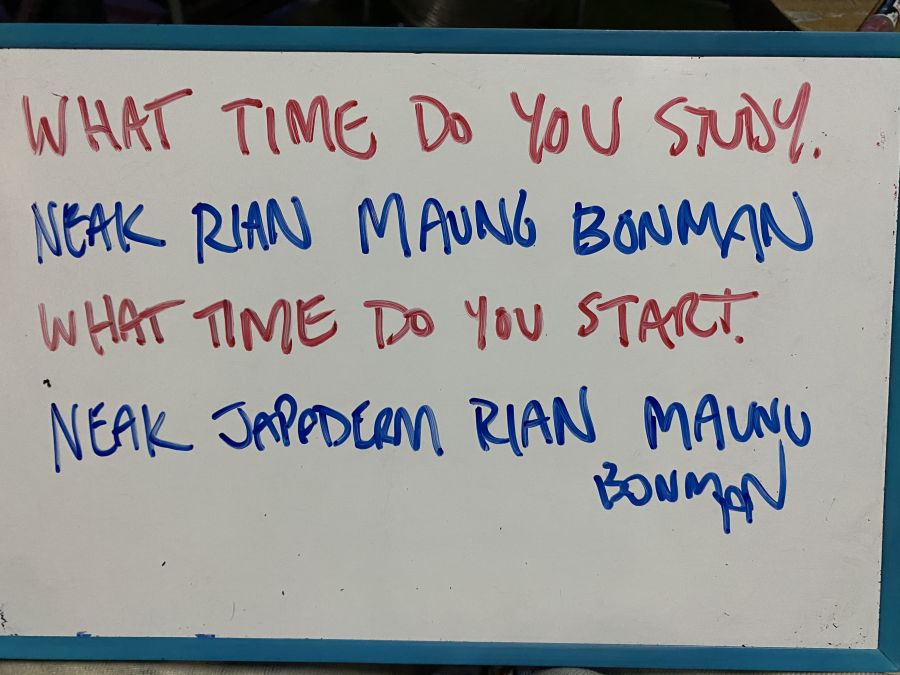 WHAT TIME DO YOU STUDY.
NEAK RIAN MAUNG BONMAN
WHAT TIME DO YOU START.
NEAK JAPADERM RIAN MAUNG
BONMAN